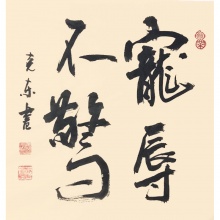 寵辱
不驚
克东書